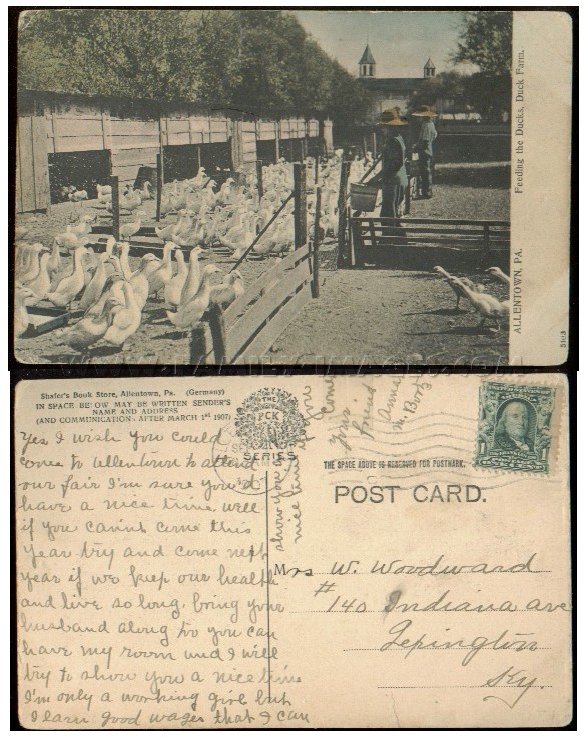 Feeding the Ducks, Duck Farm.
ALLENTOWN, PA.
Shafer's Book Store, Allentown, Pa. (Germany)
IN SPACE BELOW MAY BE WRITTEN SENDER'S
NAME AND ADDRESS
(AND COMMUNICATION: AFTER MARCH 1st 1907)
THE
PCK
SERIES
THE SPACE ABOVE IS RESERVED FOR POSTMARK.
POST CARD.
Yes I wish you could
come to Allentown to attend
our fair I'm sure you'd
have a nice time, well
if you can't come this
year try and come next
year if we keep our health
and live so long, bring your
husband along to you can
have my room and I will
try to show you a nice time
I'm only a working girl but
I earn good wages that I can
show you a
nice time if you
come
Your
friend
Anna
M. 
Mrs W. Woodward
# 140 Indiana ave
Lexington
Ky.
1